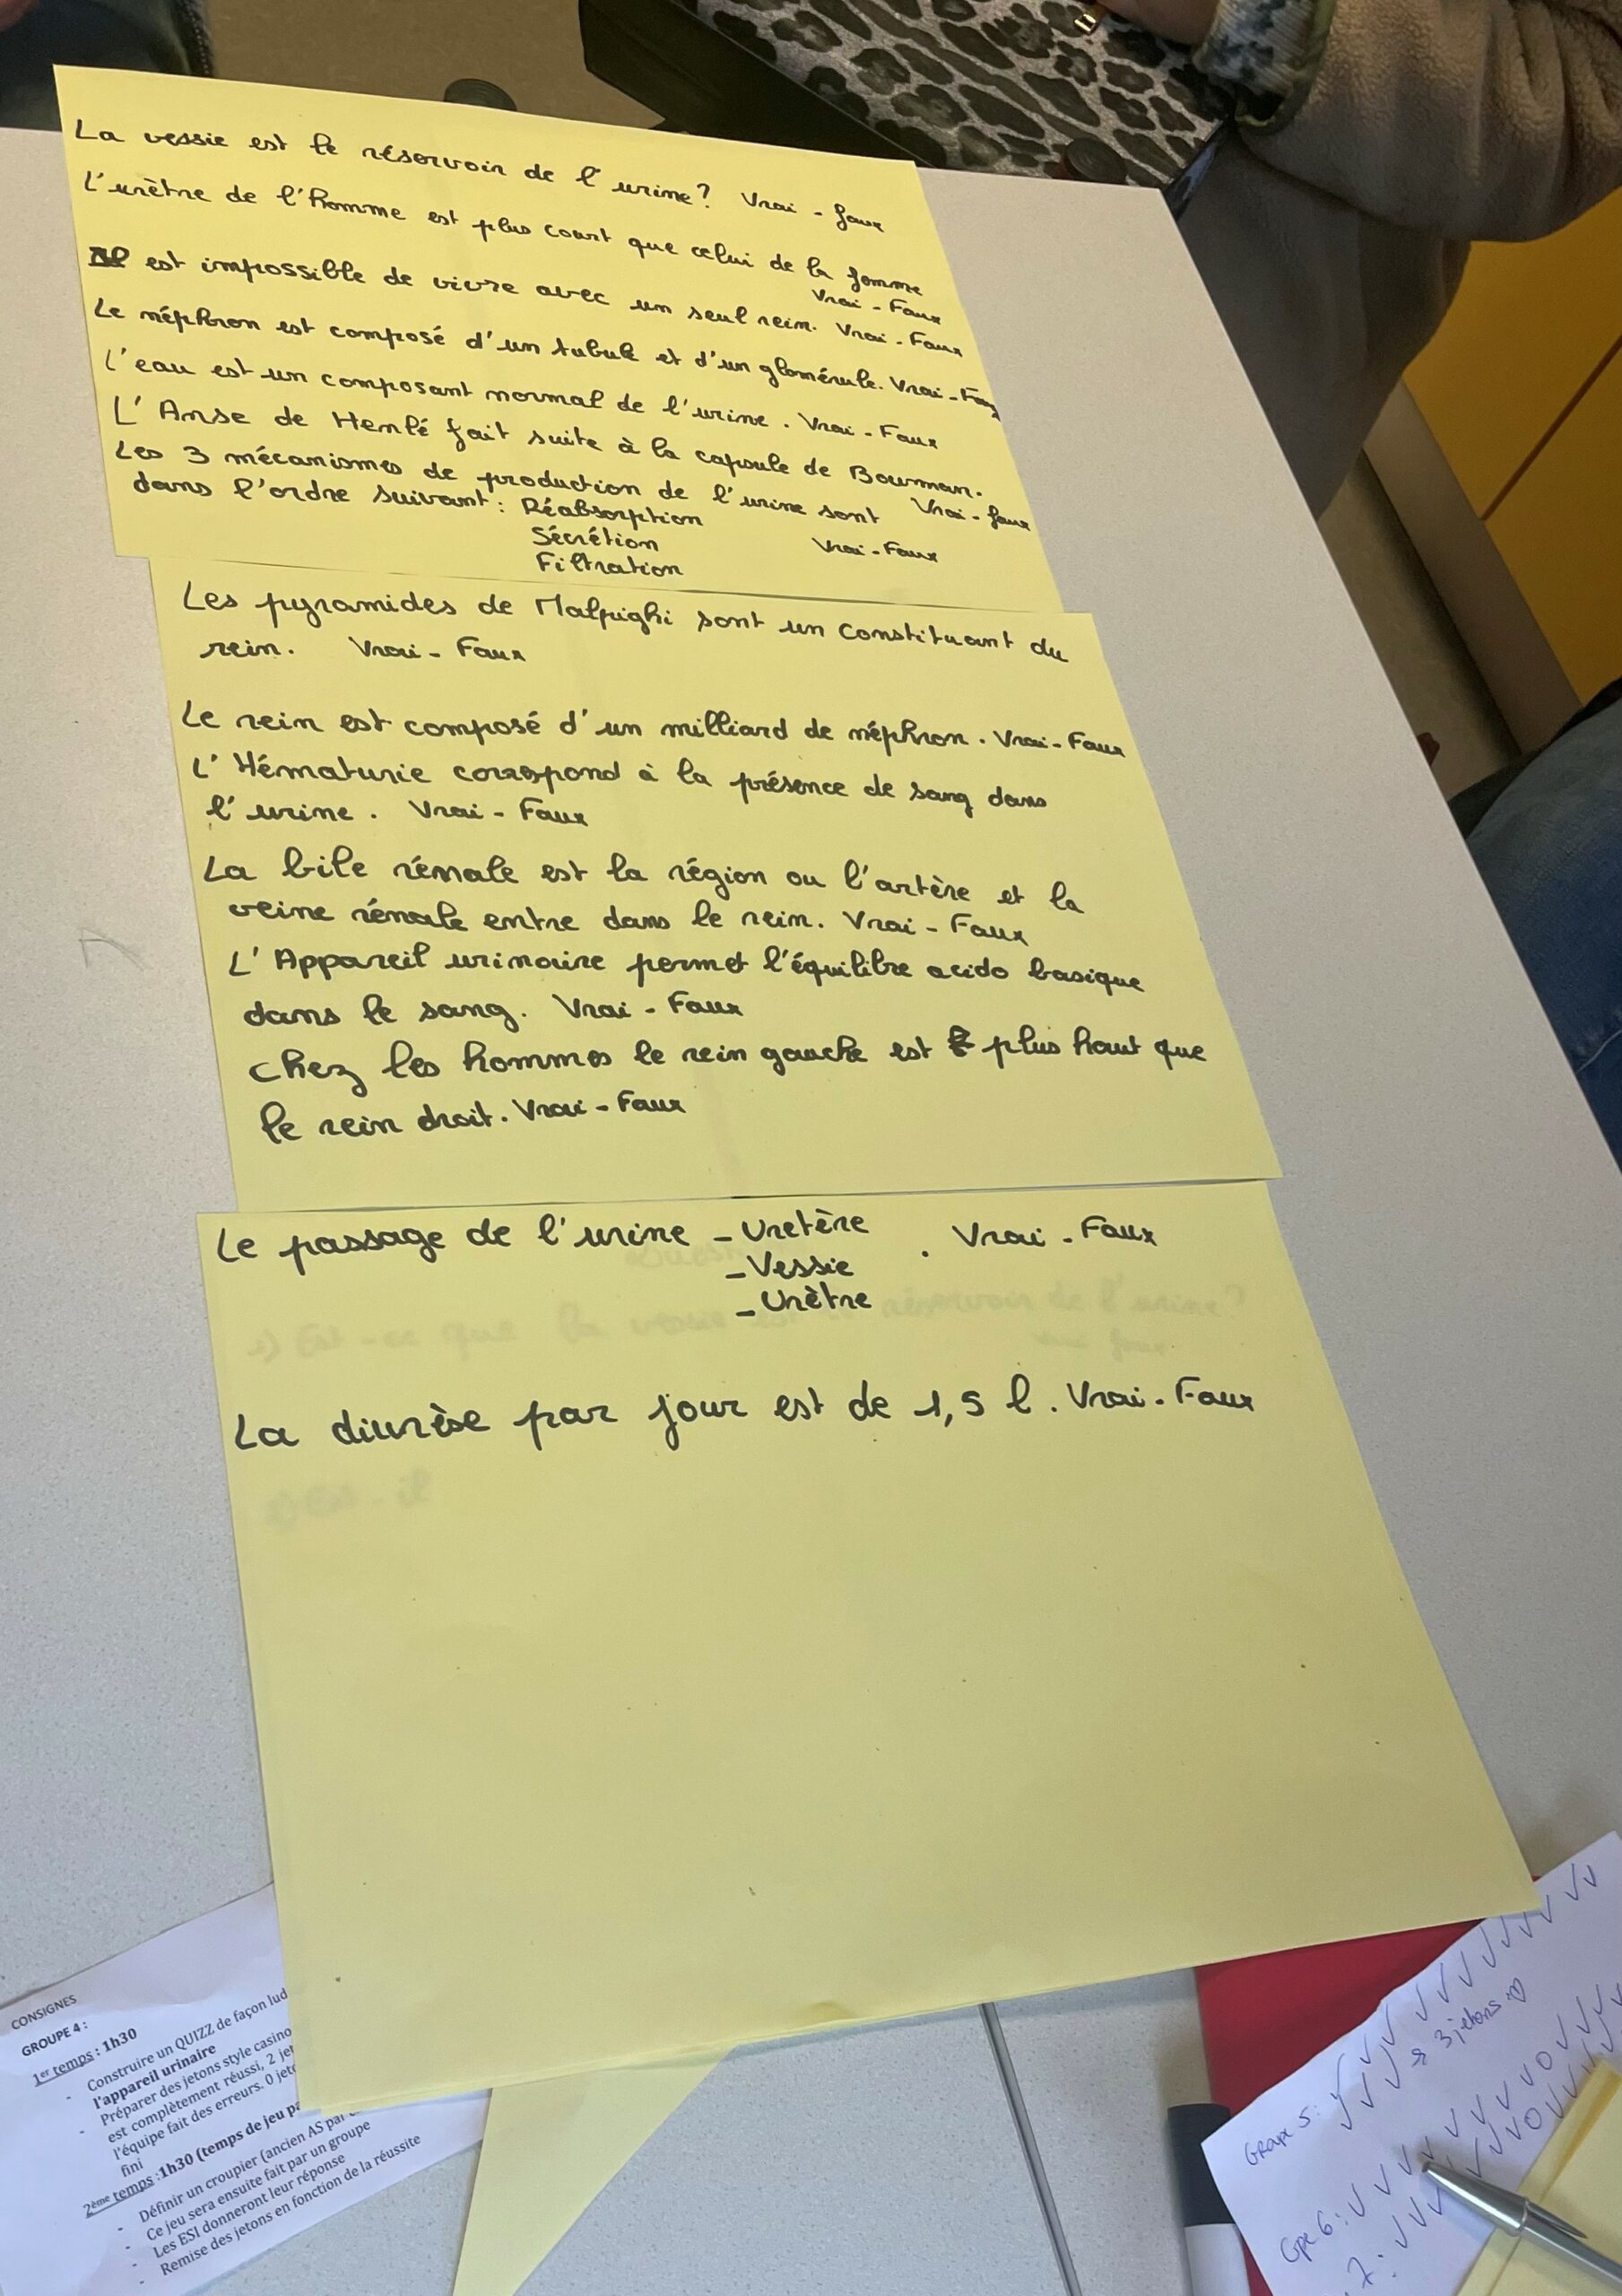 La vessie est le réservoir de l'urine? Vrai - faux
L'urètre de l'homme est plus court que celui de la femme
Vrai - Faux
Il est impossible de vivre avec un seul rein. Vrai - Faux
Le néphron est composé d'un tubule et d'un glomérule. Vrai - Faux
L'eau est un composant normal de l'urine. Vrai - Faux
L'Anse de Henlé fait suite à la capsule de Bowman.
Vrai - faux
Les 3 mécanismes de production de l'urine sont
dans l'ordre suivant: Réabsorption
Sécrétion Vrai - Faux
Filtration
Les pyramides de Malpighi sont un constituant du
rein. Vrai - Faux
Le rein est composé d'un milliard de néphron. Vrai - Faux
L'Hématurie correspond à la présence de sang dans
l'urine. Vrai - Faux
La bile rénale est la région ou l'artère et la
veine rénale entre dans le rein. Vrai - Faux
L'Appareil urinaire permet l'équilibre acido basique
dans le sang. Vrai - Faux
Chez les hommes le rein gauche est plus haut que
le rein droit. Vrai - Faux
Le passage de l'urine - Uretère . Vrai - Faux
- Vessie
- Urètre
La diurèse par jour est de 1,5 l. Vrai - Faux
CONSIGNES
GROUPE 4 :
1er temps : 1h30
- Construire un QUIZZ de façon lud
l'appareil urinaire
- Préparer des jetons style casino
est complètement réussi, 2 jet
l'équipe fait des erreurs. 0 jeto
fini
2ème temps :1h30 (temps de jeu pa
- Définir un croupier (ancien AS par
- Ce jeu sera ensuite fait par un groupe
- Les ESI donneront leur réponse
- Remise des jetons en fonction de la réussite
Groupe 5:
3 jetons
Gpe 6:
7: